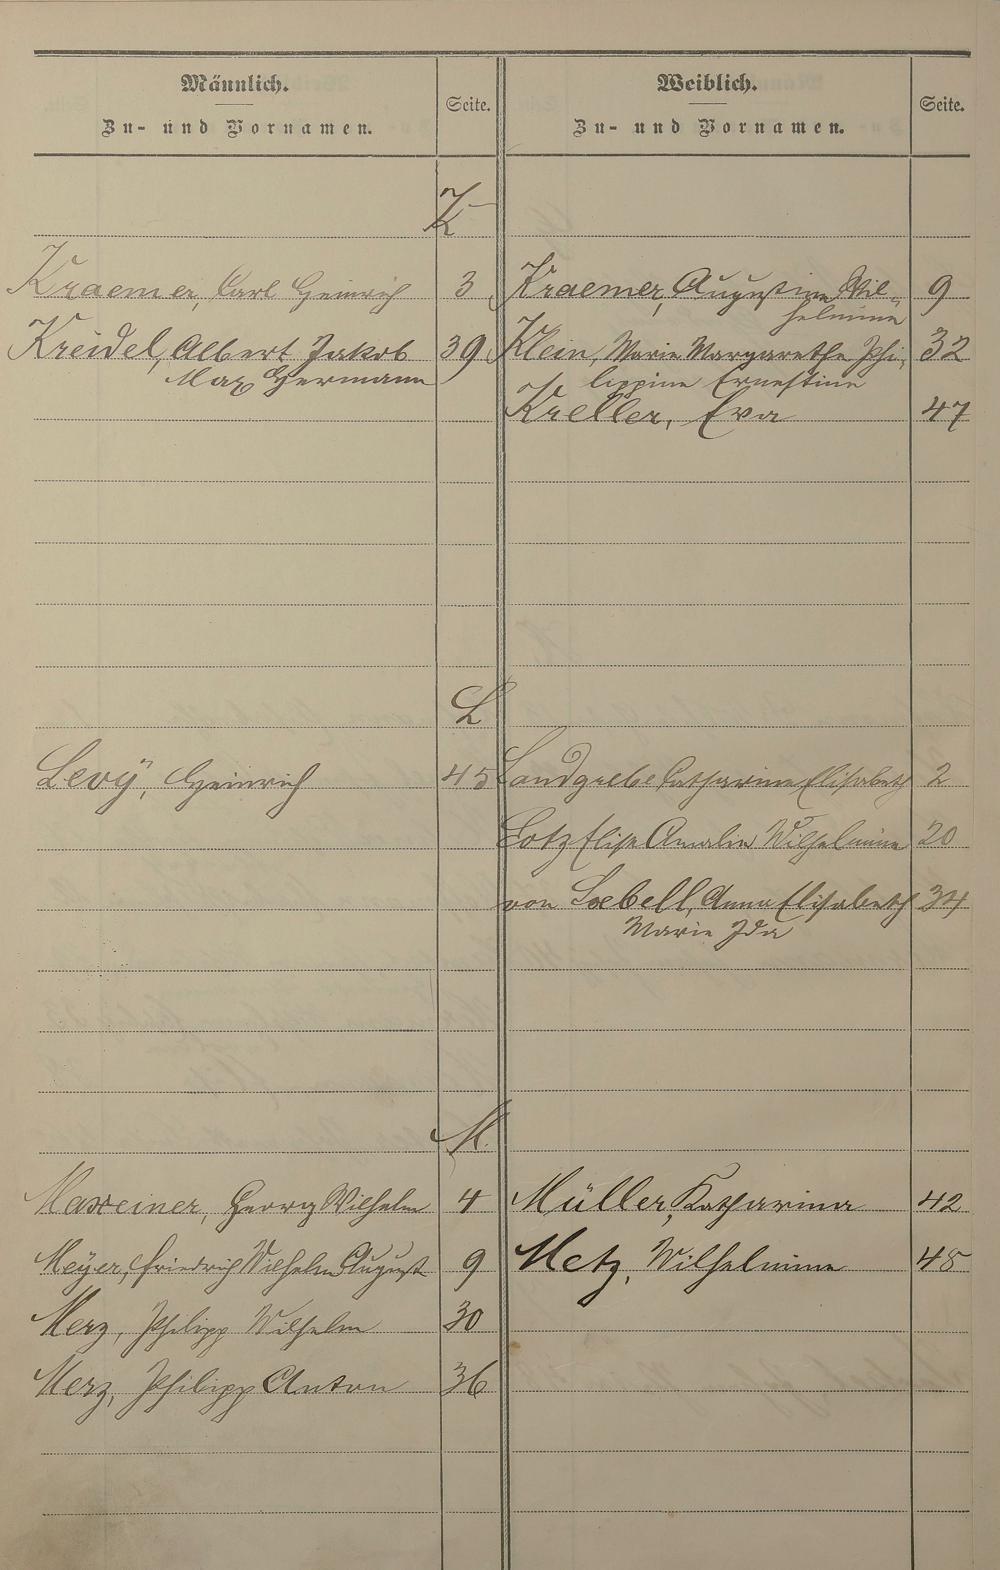 Männlich.
Zu- und Vornamen.
Seite.
Weiblich.
Zu- und Vornamen.
Seite.
K
Kraemer, Carl Heinrich 3
Kraemer, Augustine Wil-
helmine 9
Kreidel, Albert Jakob 39
Max Hermann
Klein, Marie Margarethe Phi- 32
lippine Ernestine
Kreller, Eva 47
L
Levÿ, Heinrich 45
Landgrebe Catharina Elisabeth 2
Lotz Elise Amalie Wilhelmine 20
von Loebell, Anna Elisabeth 34
Marie Ida
M.
Maxeiner, Georg Wilhelm 4
Müller, Katharina 42
Meÿer, Friedrich Wilhelm August 9
Metz, Wilhelmine 48
Merz, Philipp Wilhelm 30
Merz, Philipp Anton 36